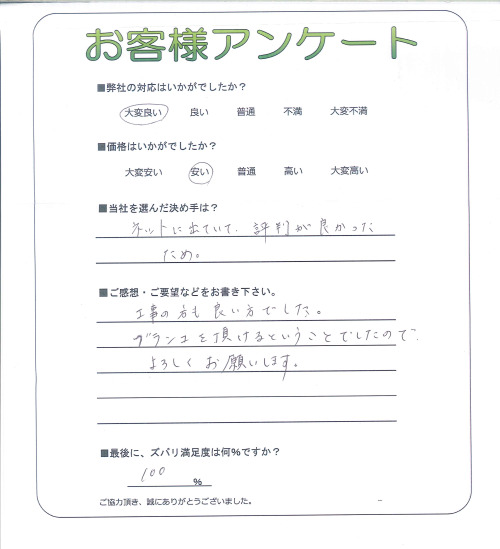 お客様アンケート
■弊社の対応はいかがでしたか？
大変良い 良い 普通 不満 大変不満
■価格はいかがでしたか？
大変安い 安い 普通 高い 大変高い
■当社を選んだ決め手は？
ネットに出ていて、評判が良かった
ため。
■ご感想・ご要望などをお書き下さい。
工事の方も良い方でした。
グランユを頂けるということでしたので、
よろしくお願いします。
■最後に、ズバリ満足度は何%ですか？
100 %
ご協力頂き、誠にありがとうございました。